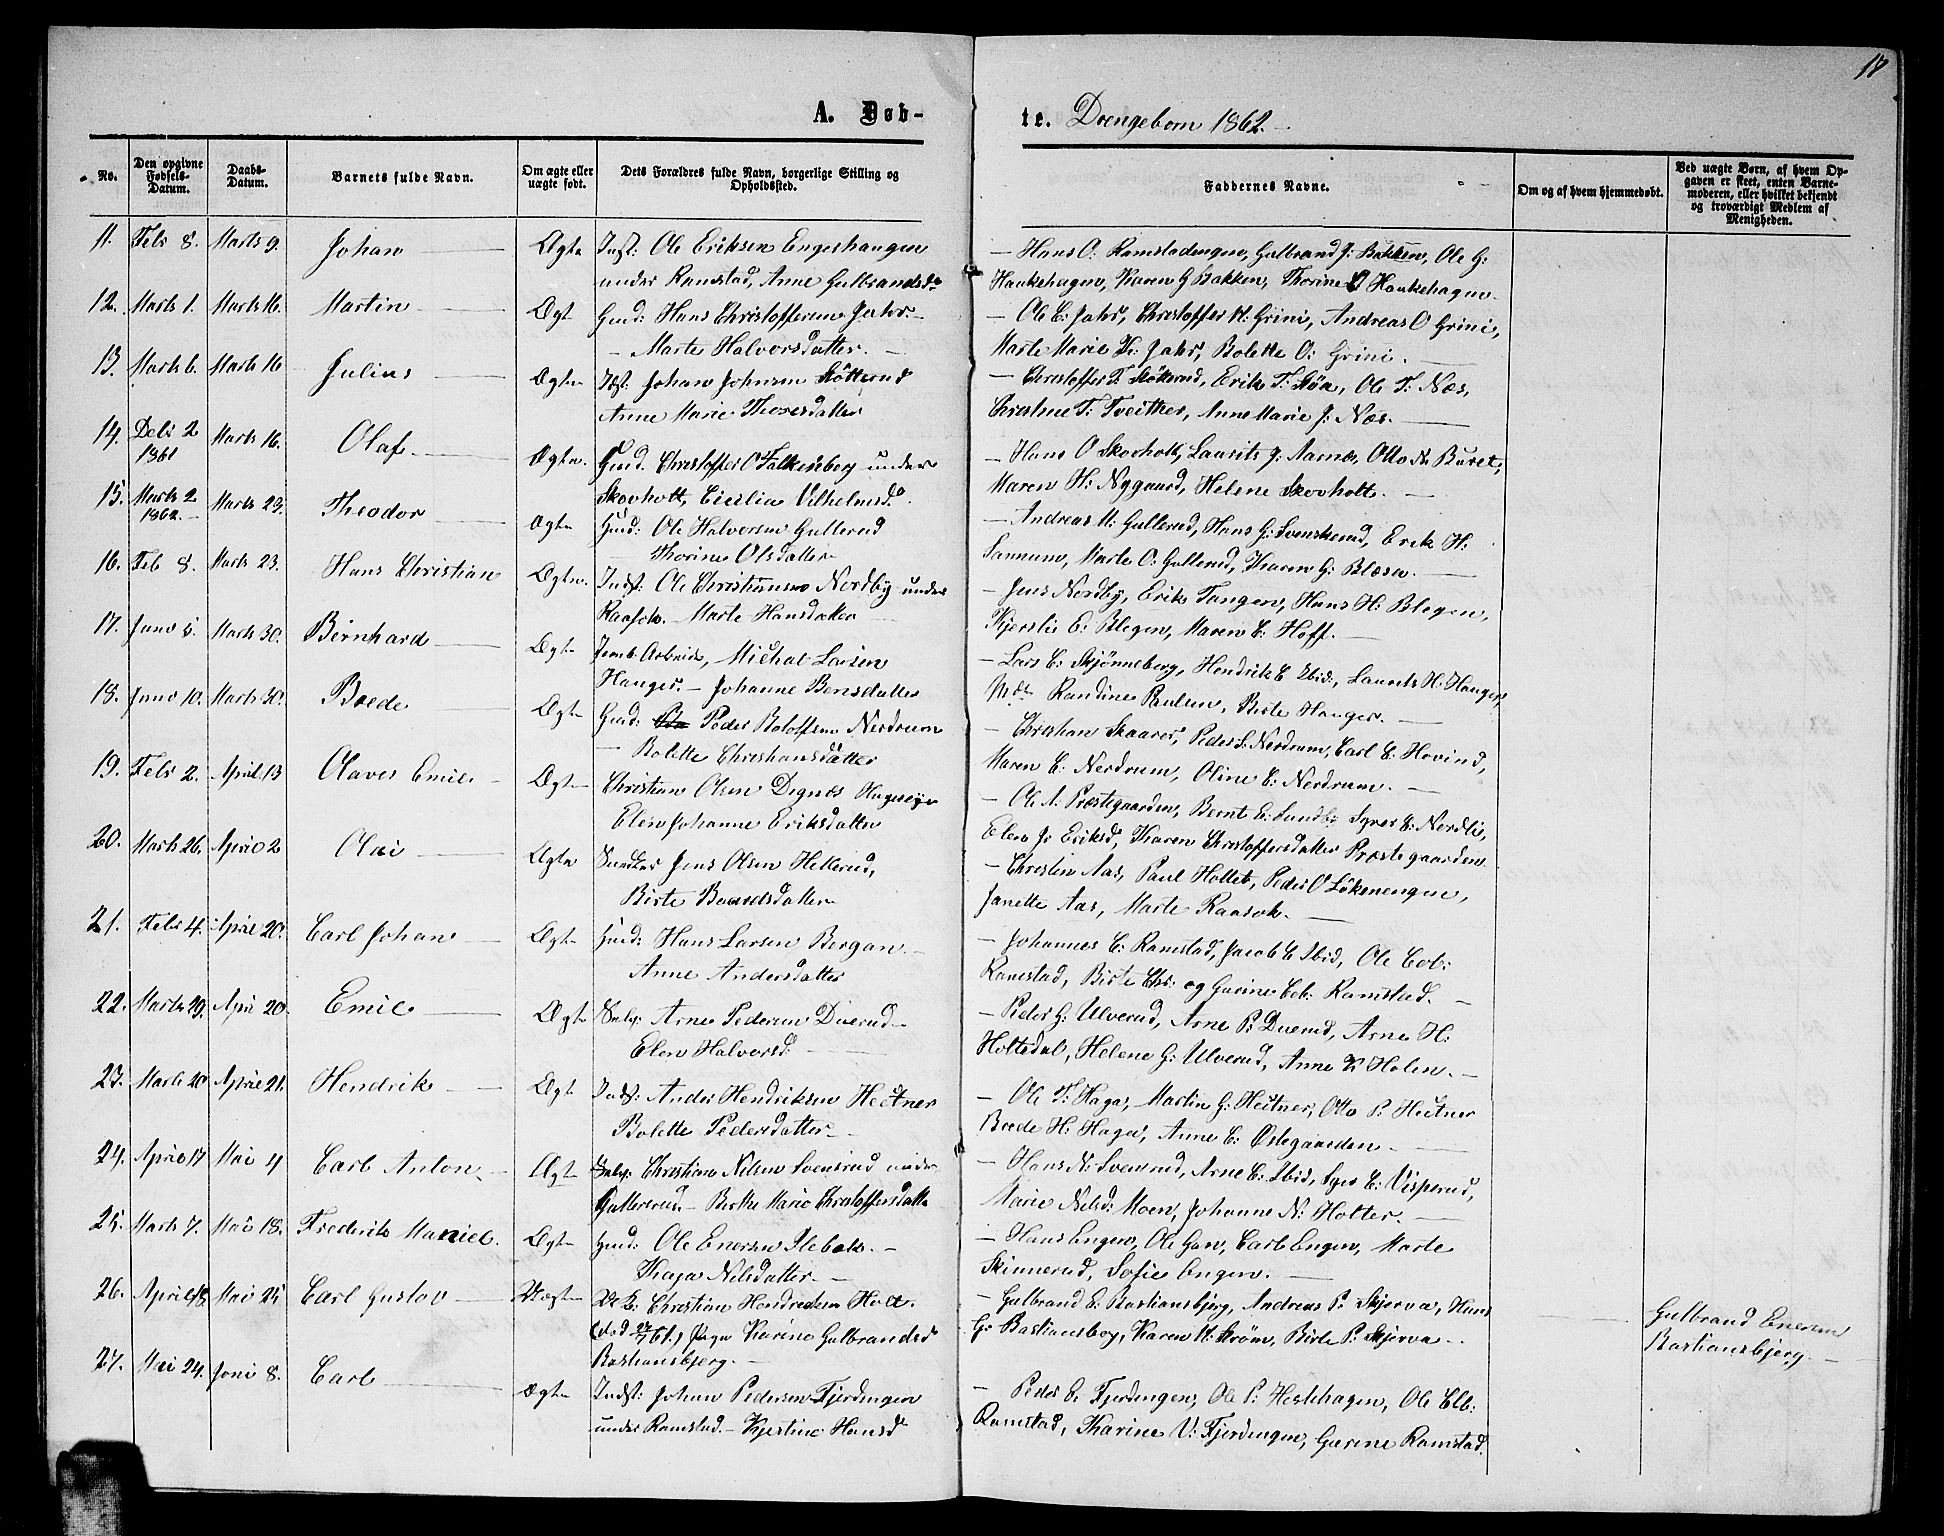 17
A. Døb-
te. Drengebørn 1862.
No.
Den opgivne Fødsels-Datum.
Daabs-Datum.
Barnets fulde Navn.
Om ægte eller uægte født.
Dets Forældres fulde Navn, borgerlige Stilling og Opholdssted.
Faddernes Navne.
Om og af hvem hjemmedøbt.
Ved uægte Børn, af hvem Opgaven er skeet, enten Barnemoderen, eller hvilket bekjendt og troværdigt Medlem af Menigheden.
11. Feb 8. Marts 9. Johan Ægte Inst: Ole Eriksen Engeshaugen
under Ramstad, Anne Gulbrandsdr
— Hans O: Ramstadengen, Gulbrand J: Bakken, Ole G:
Haukehagen, Karen G Bakken, Thorine O Haukehagen
12. Marts 1. Marts 16. Martin Ægt Gmd: Hans Christoffersen Jahr
— Marte Halvorsdatter. —
— Ole E: Jahr, Christoffer H: Grini, Andreas O Grini,
Marte Marie Jahr, Bolette O: Grini. —
13. Marts 6. Marts 16 Julius Ægte Inst: Johan Johnsen Støtterud
Anne Marie Thoresdatter
— Christoffer T. Støtterud, Erik T: Støa, Ole T: Næs,
Christine T: Tveither, Anne Marie J: Næs. —
14. Debr 2 1861 Marts 16. Olaf Ægte. Gmd. Christoffer O Falkenberg under
Skovholt, Cicilia Vilhelmsd.
— Hans O Skovholt, Laurits J: Aarnæs, Otto N: Buret,
Maren H: Nygaard, Helene Skovholt. —
15. Marts 2 1862. Marts 23. Theodor Ægte Gmd: Ole Halvorsen Gullerud
Thorine Olsdatter
— Andreas H: Gullerud, Hans G: Svenskerud, Erik H:
Sannum, Marte O: Gullerud, Karen G: Blæsa. —
16. Feb 8. Marts 23. Hans Christian Ægte. Indst: Ole Christiansen Nordby under
Raasok. Marte Hansdatter
— Jens Nordby, Erik Tangen, Hans H: Blegen,
Kjersti E: Blegen, Maren E: Hoff. —
17. Janv 5. Marts 30. Bernhard Ægte Jernb. Arbeid., Michal Larsen
Hanger. — Johanne Berntsdatter
— Lars E: Skjønneberg, Hendrik E Ibid., Laurits H: Hanger,
Md. Randine Paulsen, Birte Hanger. —
18. Janv 10. Marts 30. Brede Ægte Gmd: Peder Boloffsen Nerdrum
— Bolette Christiansdatter
— Christian Skaarer, Peder L: Nerdrum, Carl E: Hovind,
Maren E: Nerdrum, Oline E: Nerdrum. —
19. Feb 2. April 13 Olaves Emil Ægte Christian Olsen Dignæs
Elen Johanne Eriksdatter
— Ole A: Præstegaarden, Bernt E: Lundby Syver E: Nordli,
Elen J: Eriksd, Karen Christoffersdatter Præstegaarden
20. Marts 26. April 2 Olai Ægte Snedker Jens Olsen Hellerud,
Birte Baardsdatter
— Christen Aas, Paul Hollet, Peder O Løkenengen,
Janette Aas, Marte Raasok. —
21. Febr 4. April 20. Carl Johan Ægte Gmd: Hans Larsen Bergan. —
Anne Andersdatter
— Johannes E: Ramstad, Jacob E Ibid, Ole Eeb:
Ramstad, Birte Chr: og Gurine Eeb: Ramstad. —
22. Marts 29. April 20. Emil Ægte Selv: Arne Pedersen Duerud
Elen Halvorsd: —
— Peder G: Ulverud, Arne P: Duerud, Arne H:
Holtedal, Helene G: Ulverud, Anne Holen. —
23. Marts 20 April 21. Hendrik Ægt Indst: Anders Hendriksen Heitner
Bolette Pedersdatter
— Ole T: Haga, Martin G: Heitner, Otto P: Heitner
Brede H: Haga, Anne E: Østegaarden —
24. April 17 Mai 4 Carl Anton Ægt Selv: Christian Nilsen Svensrud under
Gullererud — Birthe Marie Christoffersdatte
— Hans N: Svensrud, Arne E: Ibid, Syver E: Visperud,
Marie Nilsd: Moen, Johanne N: Holter. —
25. Marts 7. Mai 18. Frederik Maniel. Ægte Gmd: Ole Enersen Plebak. —
Kaja Nilsdatter. —
— Hans Engen, Ole Gan, Carl Engen, Marte
Skinnerud, Sofie Engen. —
26. April 18 Mai 25 Carl Gustav Uægte U.K: Christian Hendriksen Holt.
Pige Karine Gulbrandsd
Bastiansbjerg. —
— Gulbrand E: Bastiansbjerg, Andreas P: Skjerva, Hans
G: Bastiansberg, Karen H: Strøm, Birte P: Skjerva —
Gulbrand Enersen
Bastiansbjerg. —
27. Mai 24. Juni 8. Carl Ægte Indst: Johan Pedersen Fjerdingen
under Ramstad. — Kjerstine Hansd
— Peder E: Fjerdingen, Ole P: Hestehagen, Ole Elb:
Ramstad, Karine V: Fjerdingen, Gurine Ramstad.